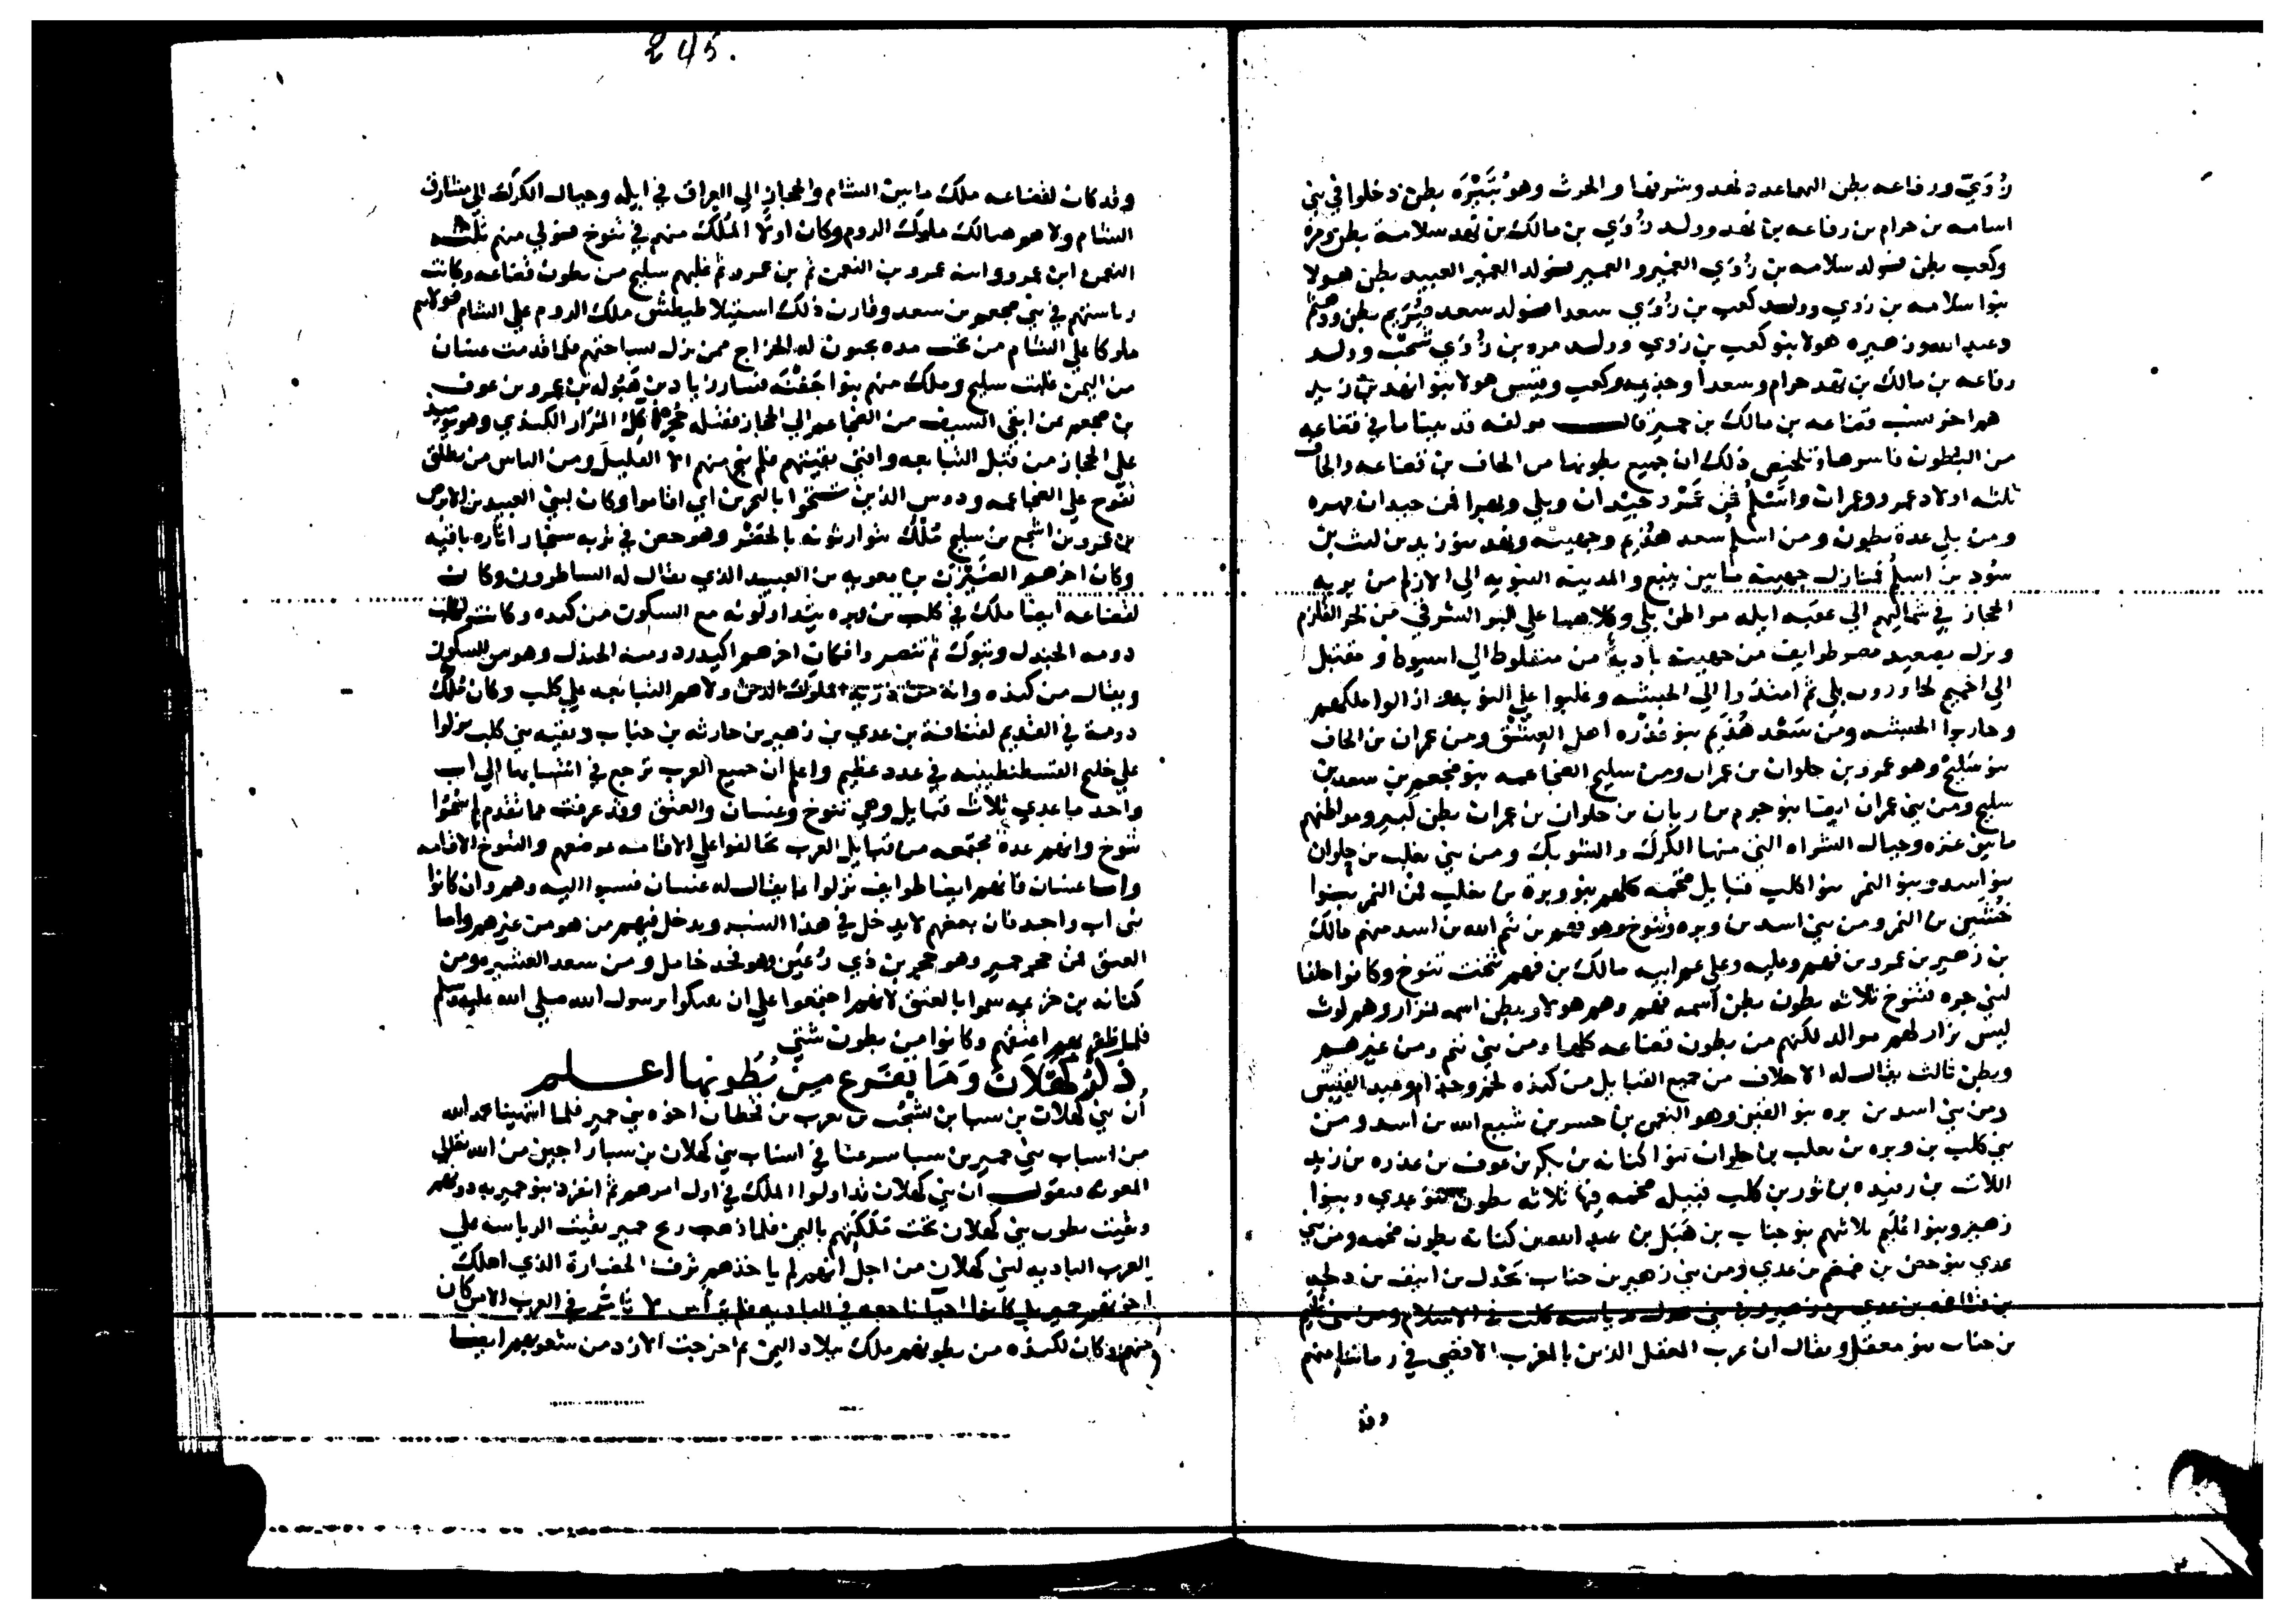 زُوَيّ ورفاعه بطن الهماعدد نهد وشرفها والحرث وهو بطن دخلوا في بني
اسامه بن حرام بن رفاعه بن نهد وولد زُوَي بن مالك بن نهد سلامة بطن ومره
وكعب بطن فولد سلامه بن زُوَي العنبر والعمير فولد العنبر العبيد بطن هولا
بنوا سلامه بن زوي وولد كعب بن زُوَي سعدا فولد سعد بطن
وعبد الله وزهيره هولا بنو كعب بن زوي وولد مره بن زُوَي وولد
رفاعه بن مالك بن نهد حرام وسعدا وجذيمه وكعب هولا بنوا نهد بن زيد
هم اخر نسب قضاعه بن مالك بن حمير قال مولفه قد بينا ما في قضاعه
من البطون ناسوها وتلخيص ذلك ان جميع بطونها من الحاف بن قضاعه والحاف
ثلثه اولاد عمرو وعمران واسلم فمن عمرو حيدان وبلي وبهرا فمن حيدان مهره
ومن بلي عدة بطون ومن اسلم سعد هذيم وجهينه ونهد بنو زيد بن ليث بن
سود بن اسلم فمنازل جهينه ما بين ينبع والمدينه النبويه الي الازلم من بريه
الحجاز في شماليهم الي عقبه ايله مواطن بلي وكلاهما علي البر الشرقي من بحر القلزم
ونزل بصعيد مصر طوايف من جهينه باديه من منفلوط الي اسيوط
الي اخميم بلي ثم امتدوا الي الحبشه وغلبوا علي النوبه ازالوا ملكهم
وحاربوا الحبشه ومن سَعْد هُذَيم بنو عُذْره اهل العِشْق ومن عمران بن الحاف
بنو سليح وهو عمرو بن حلوان بن عمران ومن سليح الضجاعمه بنو ضجعم بن سعد بن
سليح ومن بني عمران ايضا بنو جرم بن ربان بن حلوان بن عمران بطن كبير ومواطنهم
ما بين غزه وجبال الشراه التي منها الكرك والشوبك ومن بني تغلب بن حلوان
بنو اسد وبنو النمر بنوا كلب قبايل ضخمه كلهم بنو وبرة بن تغلب فمن النمر بنوا
خُشَين بن النمر ومن بني اسد بن وبره وتنوخ وهو فهم بن تيم الله بن اسد منهم مالك
بن زهير بن عمرو بن فهم وعليه وعلي عم ابيه مالك بن فهم تنخت تنوخ وكانوا حلفا
لبني حزم فتنوخ ثلاثه بطون بطن اسمه فهم وهم هولا وبطن اسمه نزار وهم لوث
ليس نزار لهم بوالد لكنهم من بطون قضاعه كلها ومن بني تيم ومن غيرهم
وبطن ثالث يقال له الاحلاف من جميع القبايل من كنده ولخم وجذام وعبد القيس
ومن بني اسد بن بره بنو القين وهو النعمن بن جسر بن شيع الله بن اسد ومن
بني كلب بن وبره بن تغلب بن حلوان بنوا كنانه بن بكر بن عوف بن عذره بن زيد
اللات بن رفيده بن ثور بن كلب قبيله ضخمه فيها ثلاثه بطون بنو عدي وبنوا
زهير وبنوا عُلَيم ثلاثتهم بنو جناب بن هُبَل بن عبد الله بن كنانه بطون ضخمه ومن بني
عدي بنو حصن بن ضمضم بن عدي ومن بني زهير بن جناب بحدل بن انيف بن دلجه
بن قنافه بن عدي بن زهير ومن بني بحدل رياسه كلب في الاسلام ومن بني عُلَيم
بن جناب بنو معقل ويقال ان عرب المعقل الذين بالمغرب الاقصي في زماننا منهم
وقد
245.
وقد كان لقضاعه ملك ما بين الشام والحجاز الي العراق في ايله وجبال الكرك الي مشارف
الشام ولاهم هنالك ملوك الروم وكان اول الملك منهم في تنوخ فتولي منهم ثلثه
النعمن ابن عمرو وابنه عمرو بن النعمن ثم بن عمرو ثم غلبهم سليح من بطون قضاعه وكانت
رياستهم في بني ضجعم بن سعد وقارن ذلك استيلا طيطش ملك الروم علي الشام فولاهم
ملوكا علي الشام من تحت يده يجبون له الخراج ممن نزل بساحتهم فلما قدمت غسان
من اليمن غلبت سليح وملك منهم بنوا جَفْنَه فسار زياد بن هبوله بن عمرو بن عوف
بن ضجعم بمن ابقي السيف من الضجاعم الي الحجاز فقتله حُجْر آكل المُرار الكندي وهو يوميذ
علي الحجاز من قبل التبابعه وافني بقيتهم فلم ينج منهم الا القليل ومن الناس من يطلق
تنوخ علي الضجاعمه ودوس الذين تنخوا بالبحرين اي اقاموا وكان لبني العبيد بن الابرص
بن عمرو بن اشجع بن سليح مُلْك يتوارثونه بالحَضْر وهو حصن في بريه سنجار اثاره باقيه
وكان اخرهم الضَيْزَن بن معويه بن العبيد الذي يقال له الساطرون وكان
لقضاعه ايضا ملك في كلب بن وبره يتداولونه مع السكون من كنده وكانت لكلب
دومه الجندل وتبوك ثم تنصروا فكان اخرهم اكيدر دومة الجندل وهو من السكون
ويقال من كنده وانه من ذرية الملوك الذين ولاهم التبابعه علي كلب وكان مُلْك
دومة في القديم لقنافة بن عدي بن زهير بن حارثه بن جناب وبقيه بني كلب نزلوا
علي خليج القسطنطينيه في عدد عظيم واعلم ان جميع العرب ترجع في انتسابها الي اب
واحد ما عدي ثلاث قبايل وهي تنوخ وغسان والعتق وقد عرفت مما تقدم لم تنخوا
تنوخ وانهم عدة مجتمعه من قبايل العرب تحالفوا علي الاقامه بموضعهم والتنوخ الاقامه
واما غسان فانهم ايضا طوايف نزلوا بما يقال له غسان فنسبوا اليه وهم وان كانوا
بني اب واحد فان بعضهم لا يدخل في هذا النسب ويدخل فيهم من هو من غيرهم واما
العتق فمن حجر حمير وهو حجر بن ذي رُعَين وهو فخذ خامل ومن سعد العشيره ومن
كنانه بن خزيمه سموا بالعتق لانهم اجتمعوا علي ان يفتكوا برسول الله صلي الله عليه وسلم
فلما ظفر بهم اعتقهم وكانوا من بطون شتي
ذكر كَهْلَان وَمَا تَفَرع مِن بُطُونها اعلم
أن بني كهلان بن سبا بن يشجب بن يعرب بن قحطان اخوه بني حمير فلما انتهينا بحمد الله
من انساب بني حمير بن سبا شرعنا في انساب بني كهلان بن سبا راجين من الله تعالي
المعونه فنقول ان بني كهلان تداولوا الملك في اول امرهم ثم انفرد بنو حمير به دونهم
وبقيت بطون بني كهلان تحت مَلَكَتِهم باليمن فلما ذهب ريح حمير بقيت الرياسه علي
العرب الباديه لبني كهلان من اجل انهم لم ياخذهم ترف الحضارة الذي اهلك
اخوتهم حمير بل كانوا احيا ناجعه في الباديه فلم يَرْأس في العرب الا من كان
منهم وكان لكنده من بطونهم ملك ببلاد اليمن ثم اخرجت الازد من شعوبهم ايضا